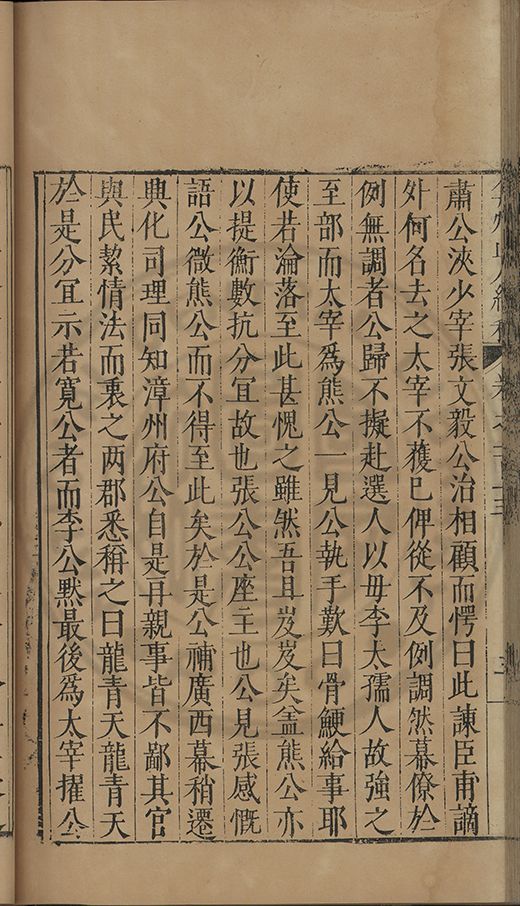 肅公浹少宰張文毅公治相顧而愕曰此諫臣甫謫
外何名去之太宰不獲巳俾從不及例調然幕僚於
例無調者公歸不擬赴選人以毋李太孺人故強之
至部而太宰爲熊公一見公執手歎曰骨鯁給事耶
使若淪落至此甚愧之雖然吾且岌岌矣盖熊公亦
以提衡數抗分宜故也張公公座主也公見張感慨
語公微熊公而不得至此矣於是公補廣西幕稍遷
興化司理同知漳州府公自是再親事皆不鄙其官
與民絜情法而裏之两郡悉稱之曰龍青天龍青天
於是分宜示若寛公者而李公黙最後爲太宰擢公